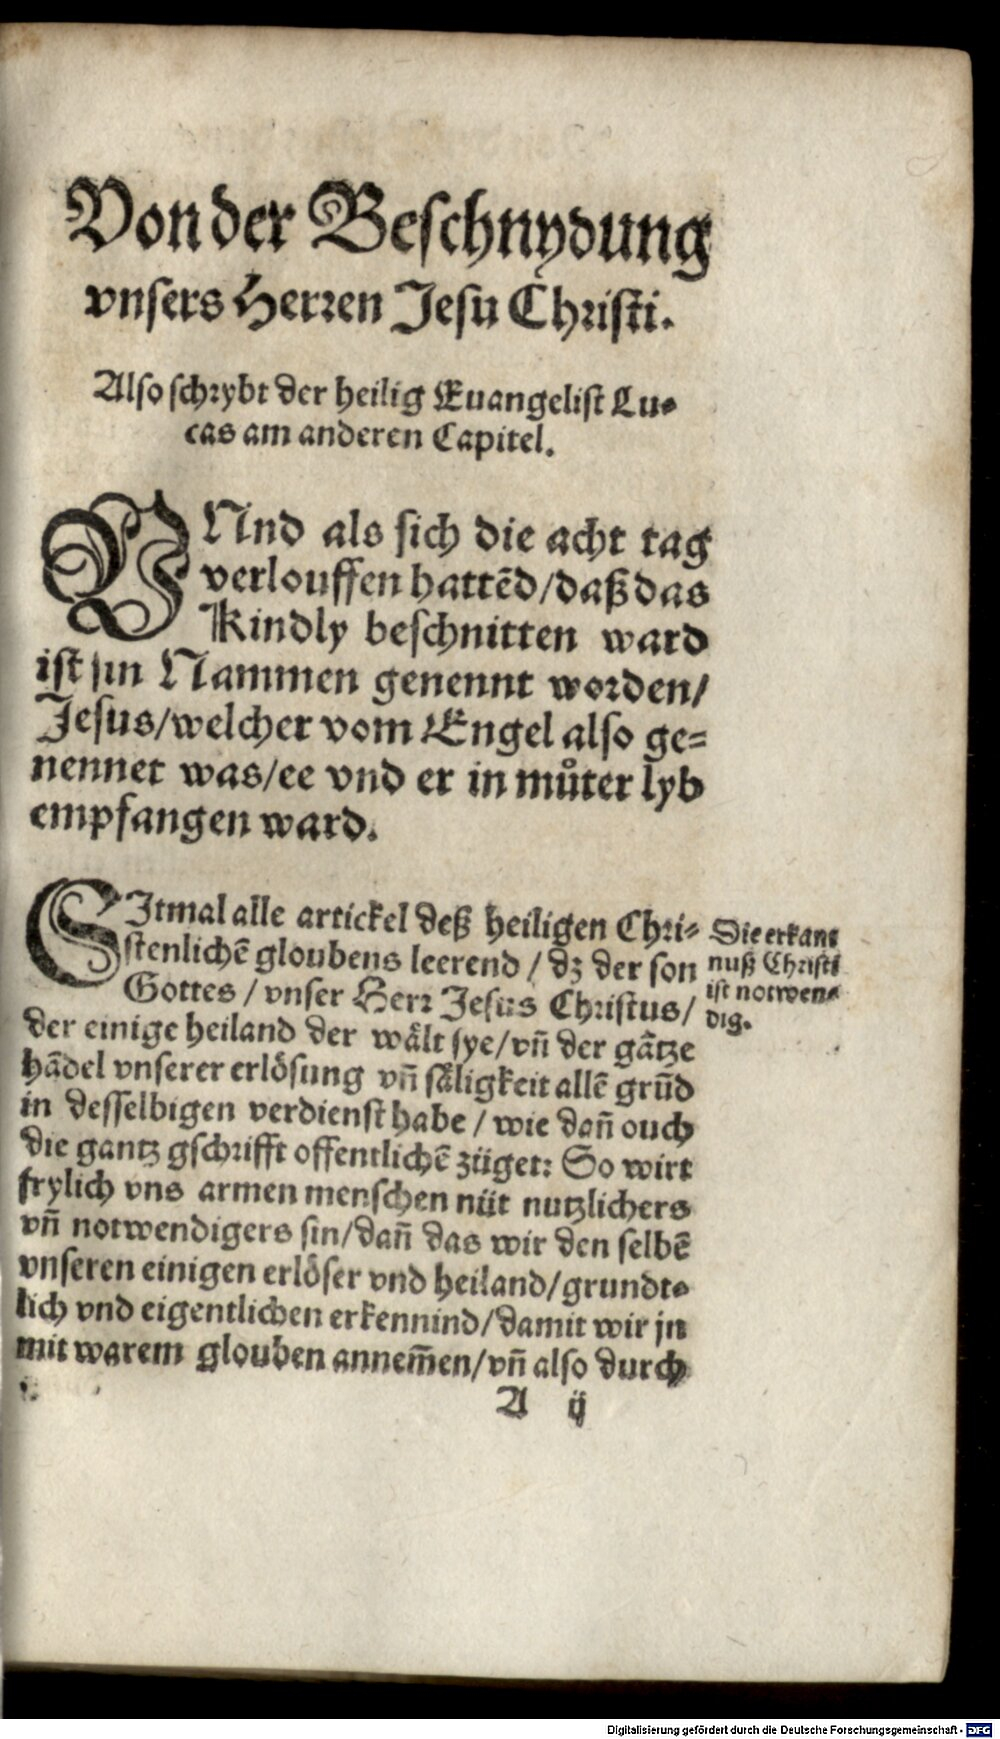 Von der Beschnydung
vnsers Herren Jesu Christi.
Also schrybt der heilig Euangelist Lu-
cas am anderen Capitel.
VNd als sich die acht tag
verlouffen hattẽd/daß das
Kindly beschnitten ward
ist sin Nammen genennt worden/
Jesus/welcher vom Engel also ge-
nennet was/ee vnd er in můter lyb
empfangen ward.
SItmal alle artickel deß heiligen Chri-
stenlichẽ gloubens leerend / dz der son
Gottes / vnser Herr Jesus Christus/
der einige heiland der waͤlt sye/vñ der gãtze
hãdel vnserer erloͤsung vñ saͤligkeit allẽ grũd
in desselbigen verdienst habe / wie dañ ouch
die gantz gschrifft offentlichẽ züget: So wirt
frylich vns armen menschen nüt nutzlichers
vñ notwendigers sin/dañ das wir den selbẽ
vnseren einigen erloͤser vnd heiland/grundt-
lich vnd eigentlichen erkennind/damit wir jn
mit warem glouben annem̃en/vñ also durch
A ij
Die erkant
nuß Christi
ist notwen-
dig.
Digitalisierung gefördert durch die Deutsche Forschungsgemeinschaft - DFG